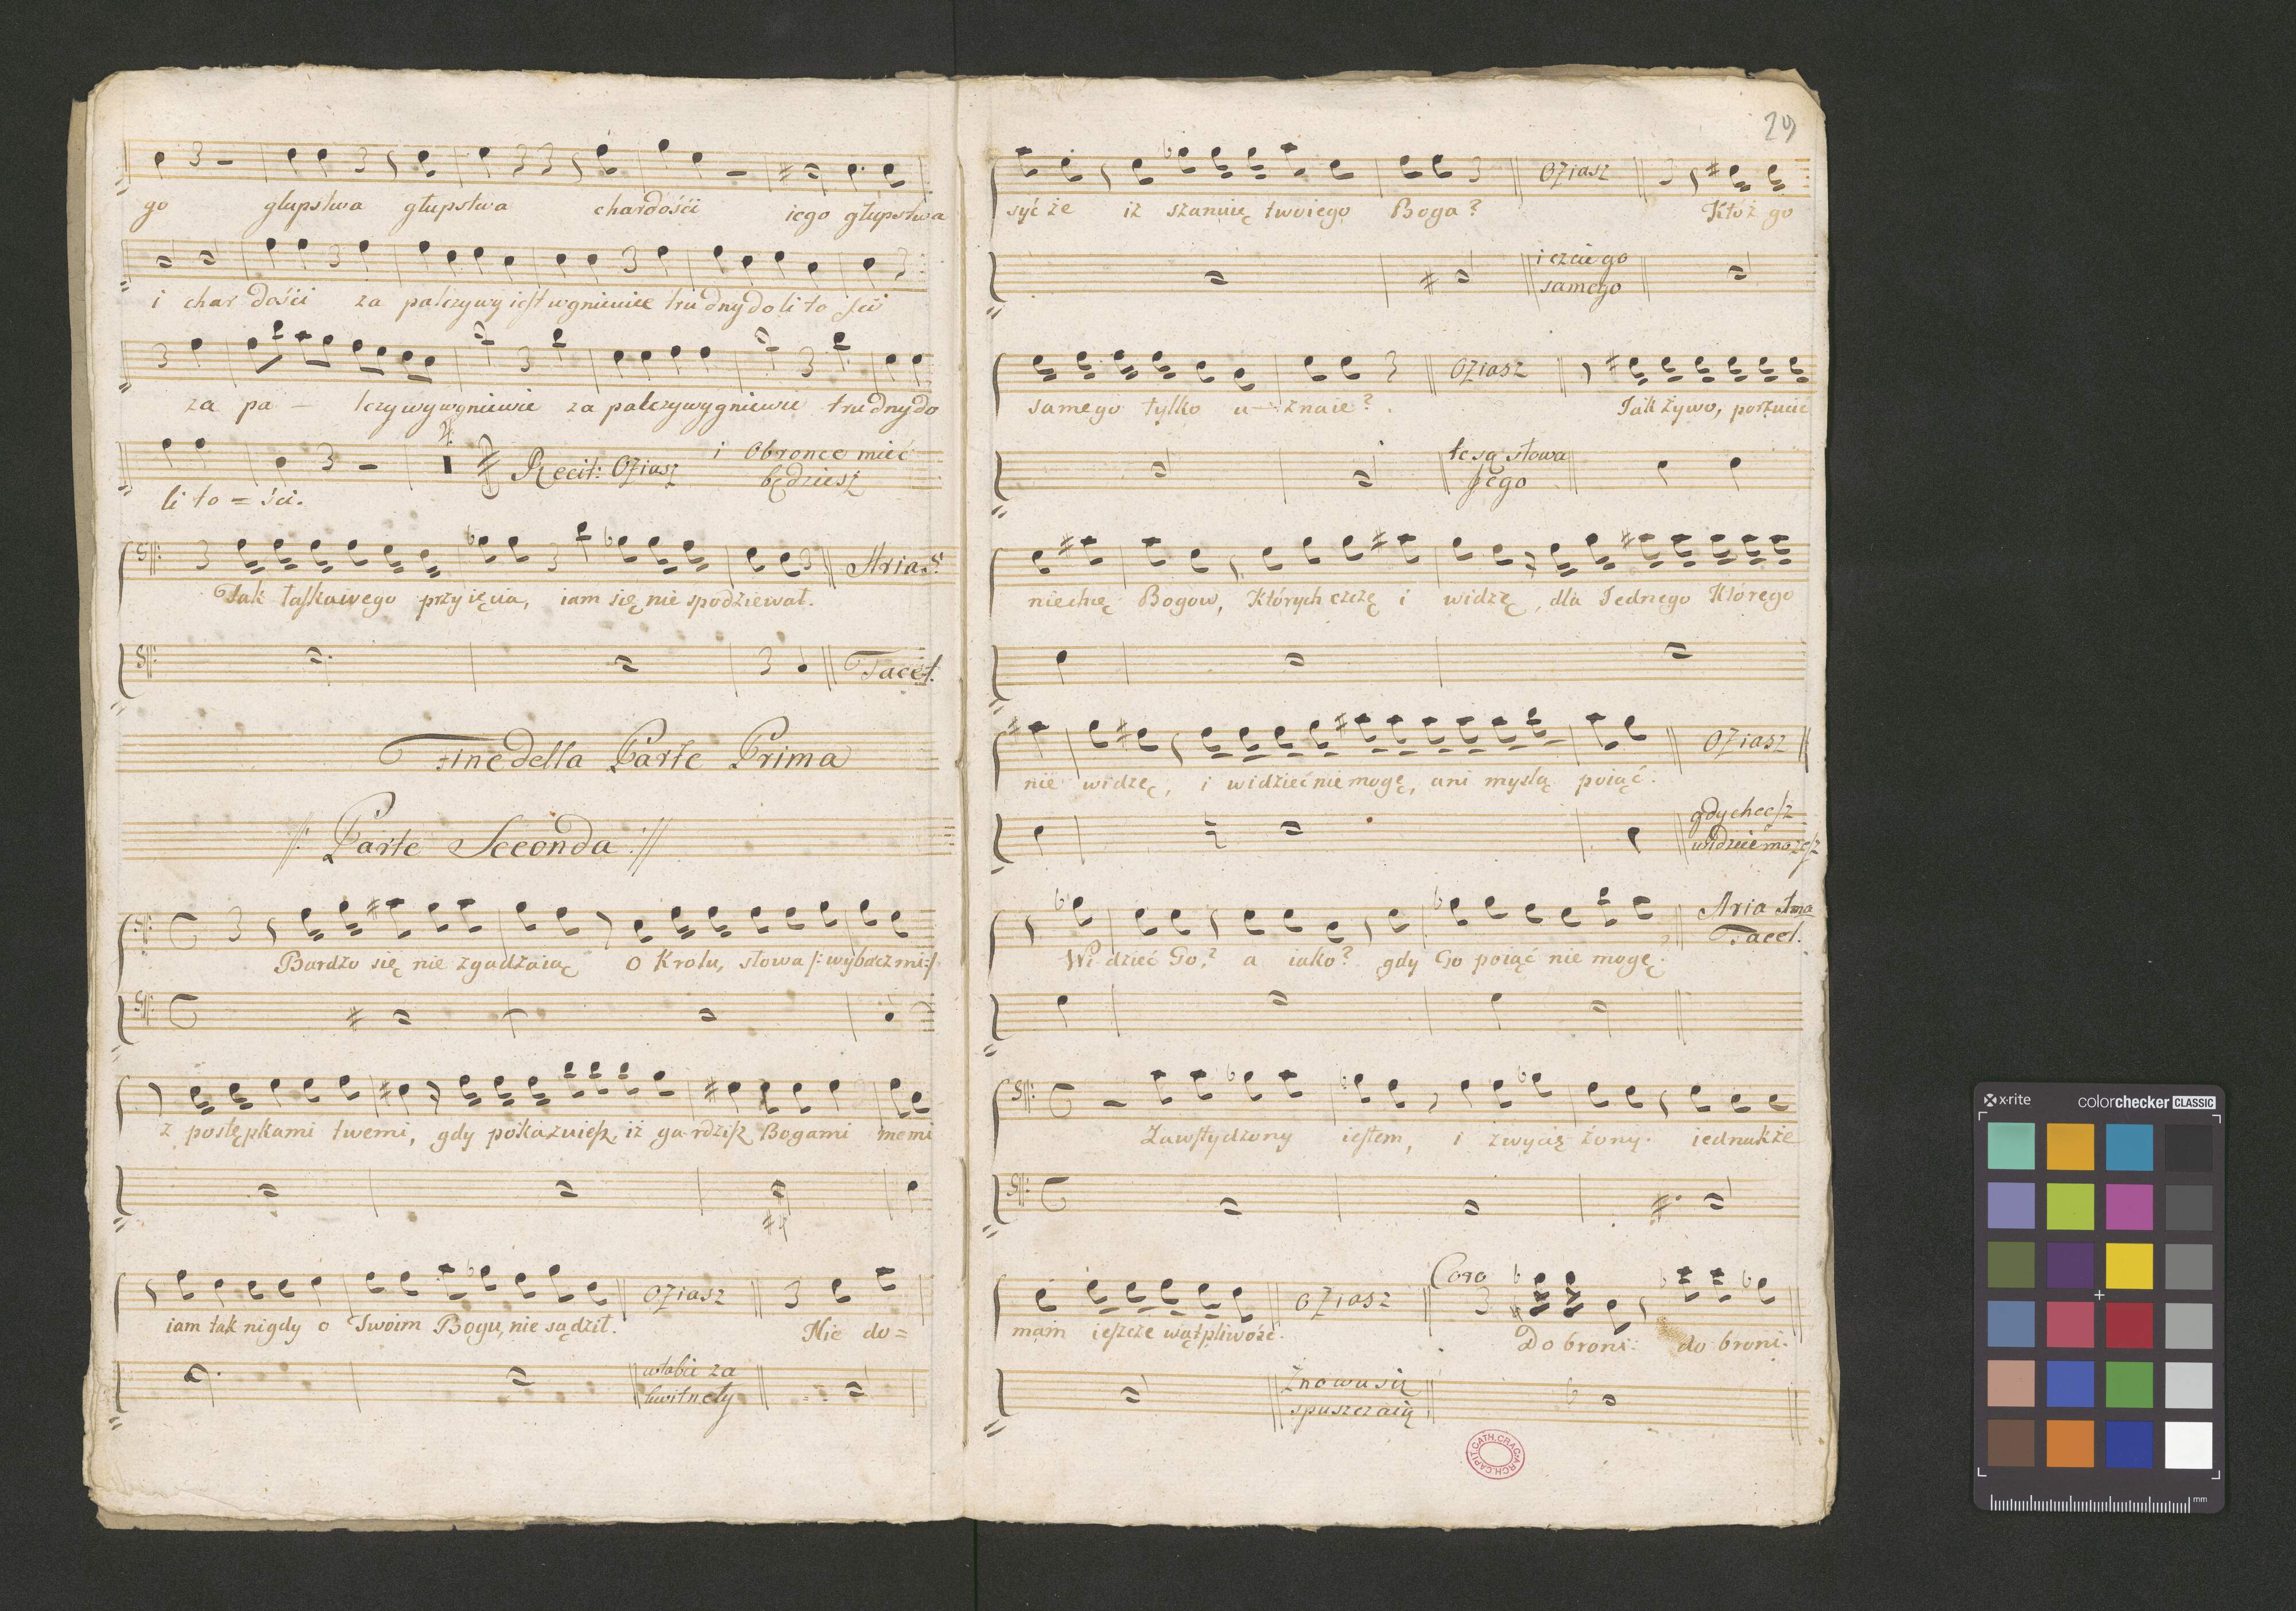 go głupstwa głupstwa chardośći iego głupstwa
i char dośći za palczywy iest wgniewie trudny do li to ści
za pa - lczywy wgniewie za palczywy gniewie trudny do
Recit: Oziasz i Obronce mieć będziesz
li to = ści.
Aria S.
Tak łaskawego przyięcia, iam się nie spodziewał.
Tacet.
Fine della Parte Prima
Parte Seconda
Bardzo się nie zgadzaią O Krolu, słowa /: wybacz mi :/
z postępkami twemi, gdy pokazuiesz, iż ga-rdzisz Bogami memi
Oziasz
iam tak nigdy o Twoim Bogu, nie sądził. Nie do=
kwitnely
29
Oziasz
syć że iż szanuię twoiego Boga? Któż go
i czcię go
samego
Oziasz
samego tylko u - znaie? Jak żywo, porzucić
te są słowa
Jego
niechcę Bogow, Których czczę i widzę, dla Jednego Którego
Oziasz
nie widzę, i widzieć nie mogę, ani myslą poiąć.
gdy chcesz
widzieć możesz
Aria
Tacet.
Wi dzieć Go? a iako? gdy Go poiąć nie mogę?
Zawstydzony iestem, i zwycię żony. iednakże
Coro
Oziasz
mam ieszcze wątpliwość. Do broni: do broni.
Znowu się
spuszczaią
ARCH.CAPIT.CATH.CRAC.
x-rite colorchecker CLASSIC
mm